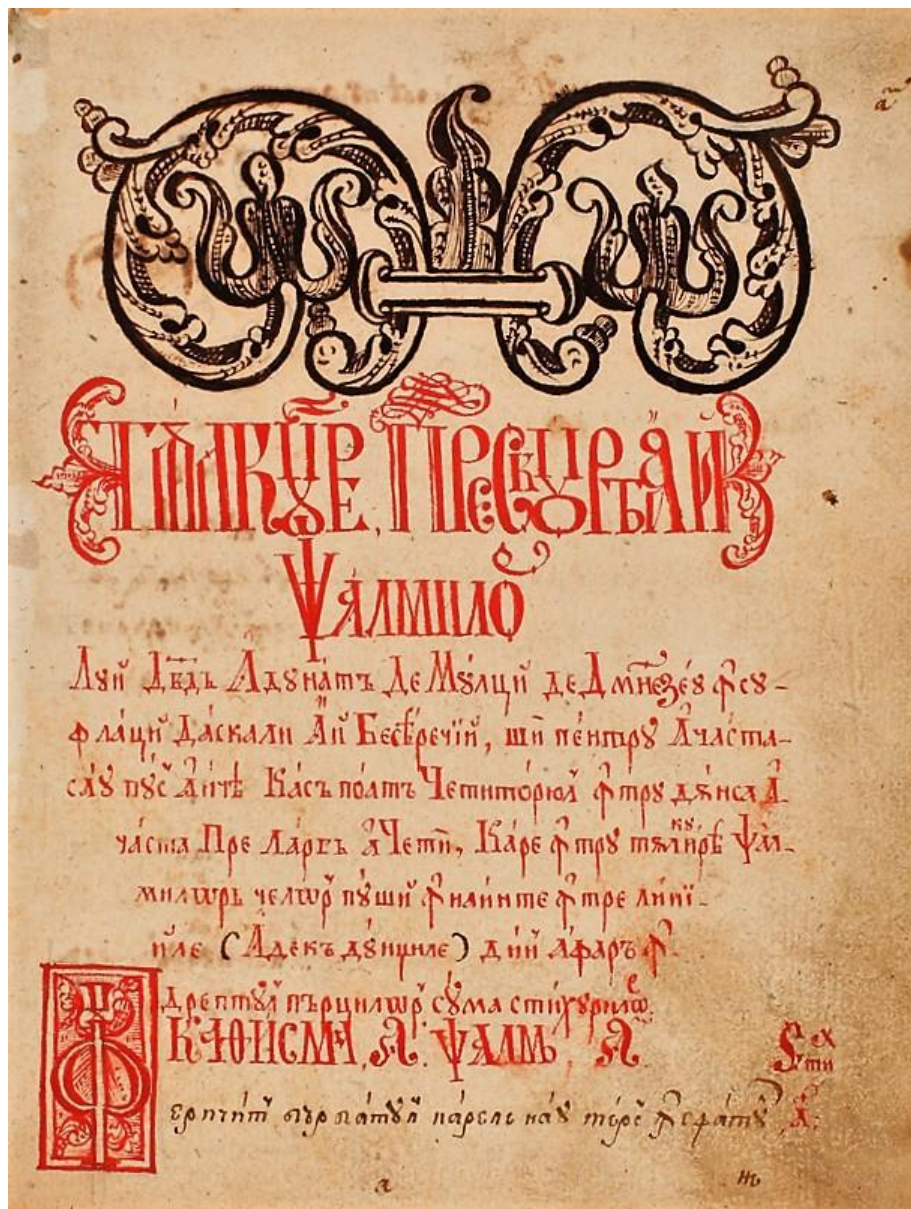 Тълкꙋире, Прескꙋртъ ай
Ѱалмилѡ
Лꙋй Дв҃дъ Адꙋнатъ Де Мꙋлци де Дꙋмнезеꙋ ꙟсꙋ-
флаци Даскали Ай Бесѣречій, ши пентрꙋ Ачаста-
саꙋ пꙋс Аичѣ Касъ поатъ Четиторюл ꙟтрꙋ дѫнса А
часта Пре Ларгъ а Чети, Каре ꙟтрꙋ тѫлкꙋирѣ Ѱал-
милѡрь челѡр пꙋши ꙟнаинте ꙟтре линїи-
иле (Адекъ дꙋнциле) дин Афаръ ꙟ
дрептꙋл пърцилѡр сꙋма стихꙋрилѡ
КАѲИСМА, А҃. ѰАЛМ, А҃ Стих
Ф
ерпчит бърбатꙋл кареле наꙋ мерс ꙟ сфатꙋ А:
а нъ